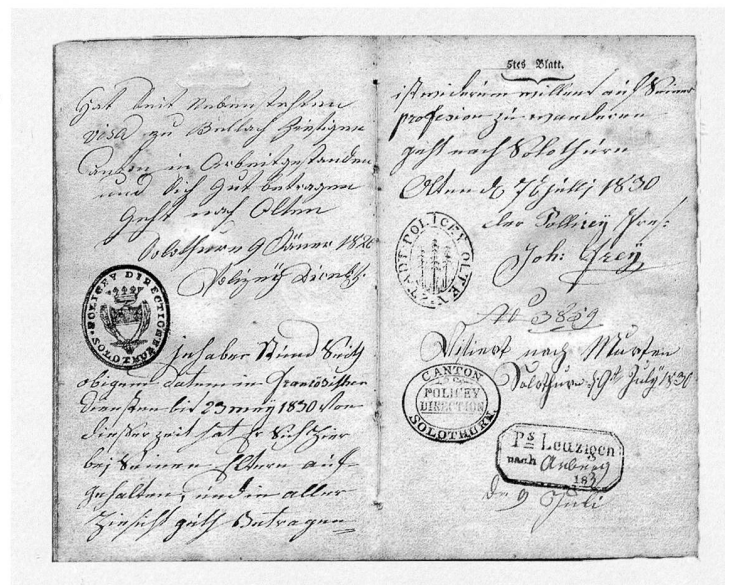 Hat seit nebenstehten
visa zu Bellach hiesigen
Canton in Arbeit gestanden
und sich gut betragen
Geht nach Olten
Solothurn 9 Jäner 1826
Polizey Direkt:
POLICEY DIRECTION
SOLOTHURN
Inhaber stund seith
obigem datum in französischen
Diensten bis 23 maÿ 1830 Von
dieser zeit hat Er Sich hier
beÿ Seinen Eltern auf-
gehalten, und in aller
Hinsicht guth Betragen
5tes Blatt.
ist widerum willens auf Seiner
profesion zu wanderen
geht nach Solothurn
Olten d. 7 julÿ 1830
der Pollizeÿ Pres:
Joh: Freÿ
STADT-POLICEY OLTEN
No 3859
Visiert nach Murten
Solothurn d 9t July 1830
CANTON
POLICEY
DIRECTION
SOLOTHURN
Ps Leuzigen
nach Arberg
183
de 9 Juli